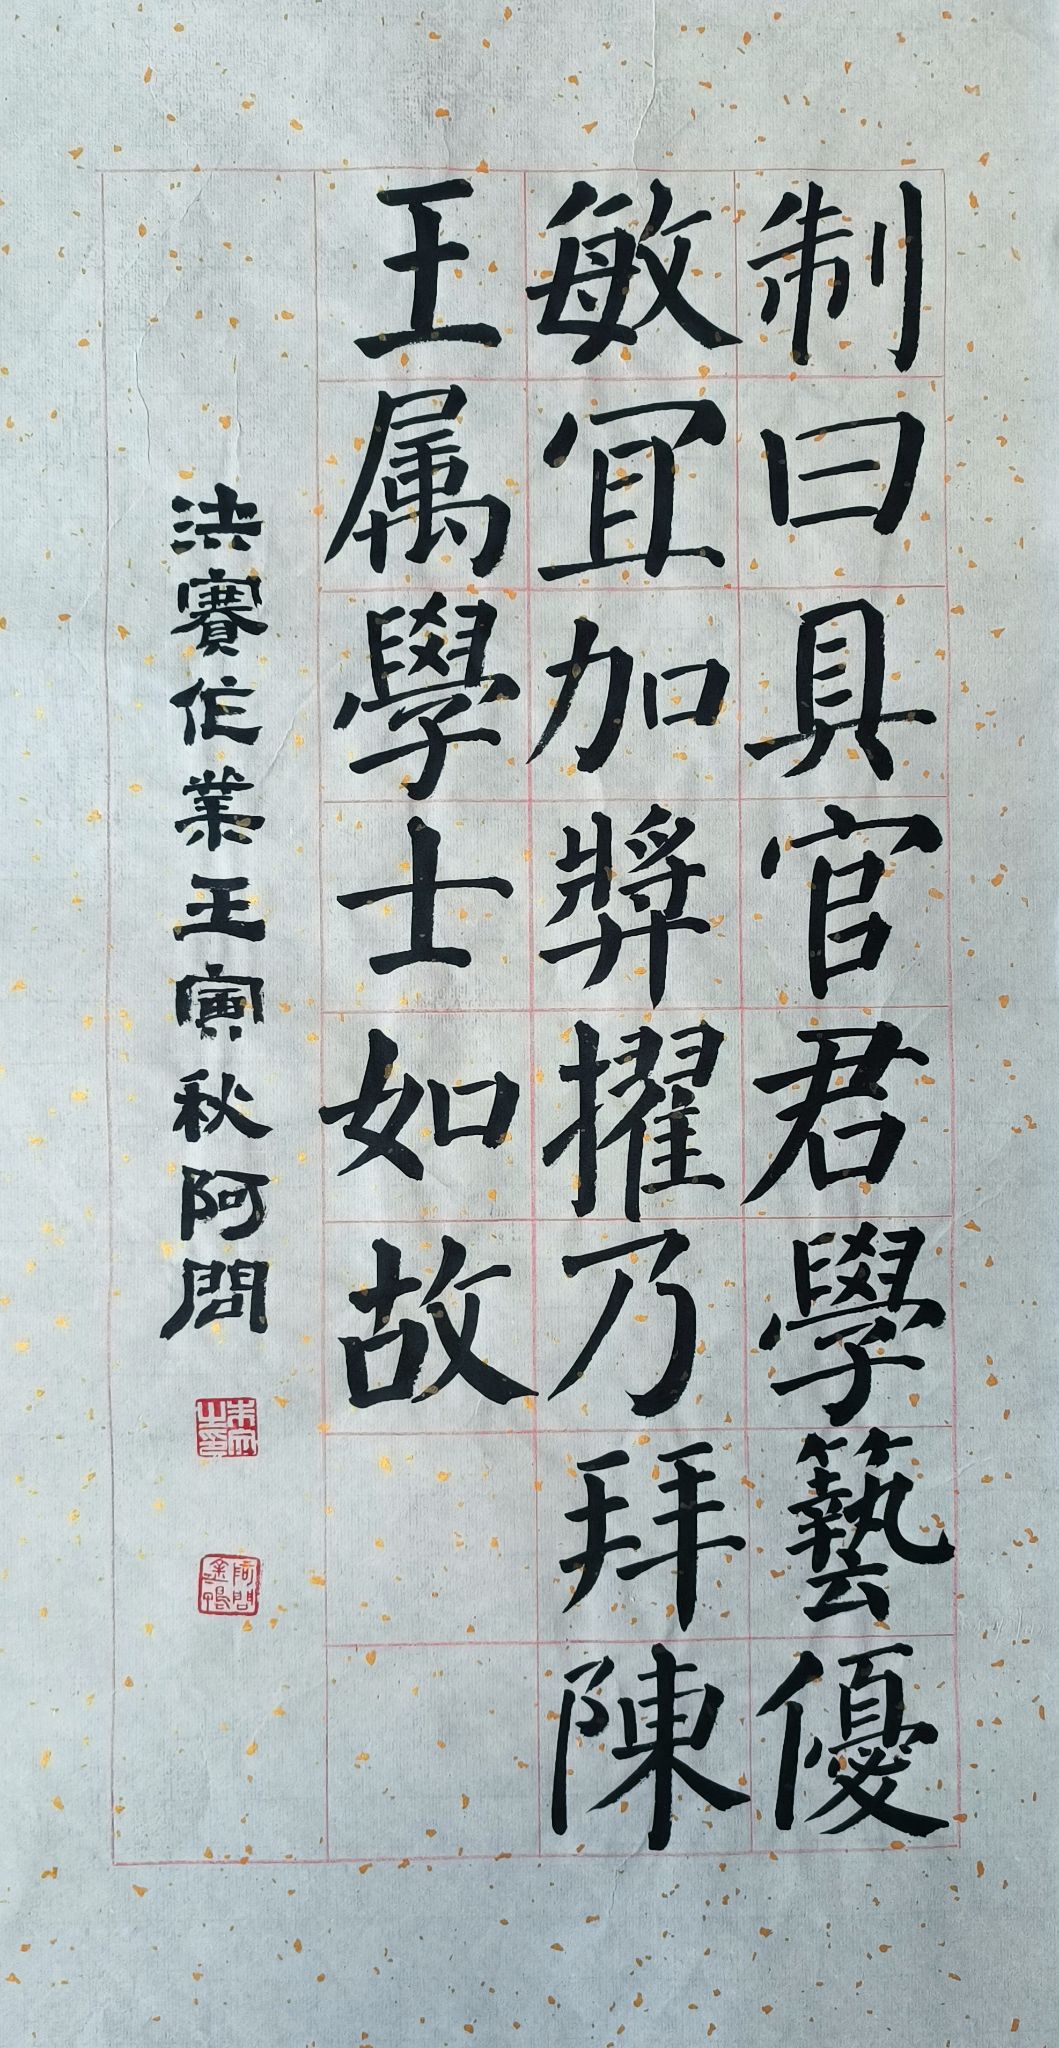 制曰具官君學藝優
敏宜加獎擢乃拜陳
王属學士如故
決賽作業壬寅秋阿問